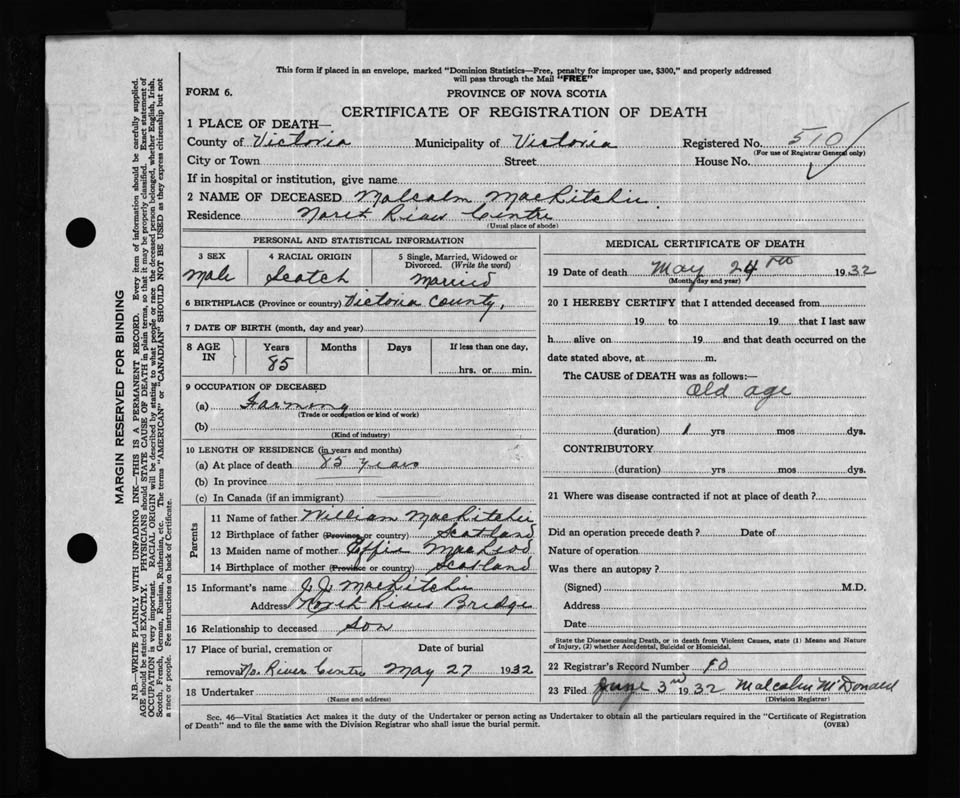 This form if placed in an envelope, marked "Dominion Statistics—Free, penalty for improper use, $300," and properly addressed
will pass through the Mail "FREE"
FORM 6.
PROVINCE OF NOVA SCOTIA
CERTIFICATE OF REGISTRATION OF DEATH
1 PLACE OF DEATH—
County of Victoria Municipality of Victoria Registered No. 510
(For use of Registrar General only)
City or Town Street House No.
If in hospital or institution, give name
2 NAME OF DECEASED Malcolm MacRitchie
Residence North River Centre
(Usual place of abode)
PERSONAL AND STATISTICAL INFORMATION
3 SEX 4 RACIAL ORIGIN 5 Single, Married, Widowed or Divorced. (Write the word)
Male Scotch Married
6 BIRTHPLACE (Province or country) Victoria County,
7 DATE OF BIRTH (month, day and year)
8 AGE IN Years Months Days If less than one day,
85 hrs. or min.
9 OCCUPATION OF DECEASED
(a) Farming
(Trade or occupation or kind of work)
(b)
(Kind of industry)
10 LENGTH OF RESIDENCE (in years and months)
(a) At place of death 85 years
(b) In province
(c) In Canada (if an immigrant)
Parents
11 Name of father William MacRitchie
12 Birthplace of father (Province or country) Scotland
13 Maiden name of mother Effie MacLeod
14 Birthplace of mother (Province or country) Scotland
15 Informant's name J. J. MacRitchie
Address North River Bridge
16 Relationship to deceased Son
17 Place of burial, cremation or Date of burial
removal No. River Centre May 27 1932
18 Undertaker
(Name and address)
MEDICAL CERTIFICATE OF DEATH
19 Date of death May 24 1932
(Month, day and year)
20 I HEREBY CERTIFY that I attended deceased from
19 to 19 that I last saw
h alive on 19 and that death occurred on the
date stated above, at m.
The CAUSE OF DEATH was as follows:—
Old age
(duration) 1 yrs mos dys.
CONTRIBUTORY
(duration) yrs mos dys.
21 Where was disease contracted if not at place of death?
Did an operation precede death? Date of
Nature of operation
Was there an autopsy?
(Signed) M.D.
Address
Date
State the Disease causing Death, or in death from Violent Causes, state (1) Means and Nature
of Injury, (2) whether Accidental, Suicidal or Homicidal.
22 Registrar's Record Number
23 Filed June 3rd 1932 Malcolm McDonald
(Division Registrar)
Sec. 46—Vital Statistics Act makes it the duty of the Undertaker or person acting as Undertaker to obtain all the particulars required in the "Certificate of Registration
of Death" and to file the same with the Division Registrar who shall issue the burial permit. (OVER)
MARGIN RESERVED FOR BINDING
N.B.—WRITE PLAINLY WITH UNFADING INK—THIS IS A PERMANENT RECORD. Every item of information should be carefully supplied.
AGE should be stated EXACTLY. PHYSICIANS should STATE CAUSE OF DEATH in plain terms, so that it may be properly classified. Exact statement of
OCCUPATION is very important. RACIAL ORIGIN will be described by stating to what people or race the deceased person belonged, whether English, Irish,
Scotch, French, German, Russian, Ruthenian, etc. The terms "AMERICAN" or "CANADIAN" SHOULD NOT BE USED as they express citizenship but not
a race or people. Fee instructions on back of Certificate.